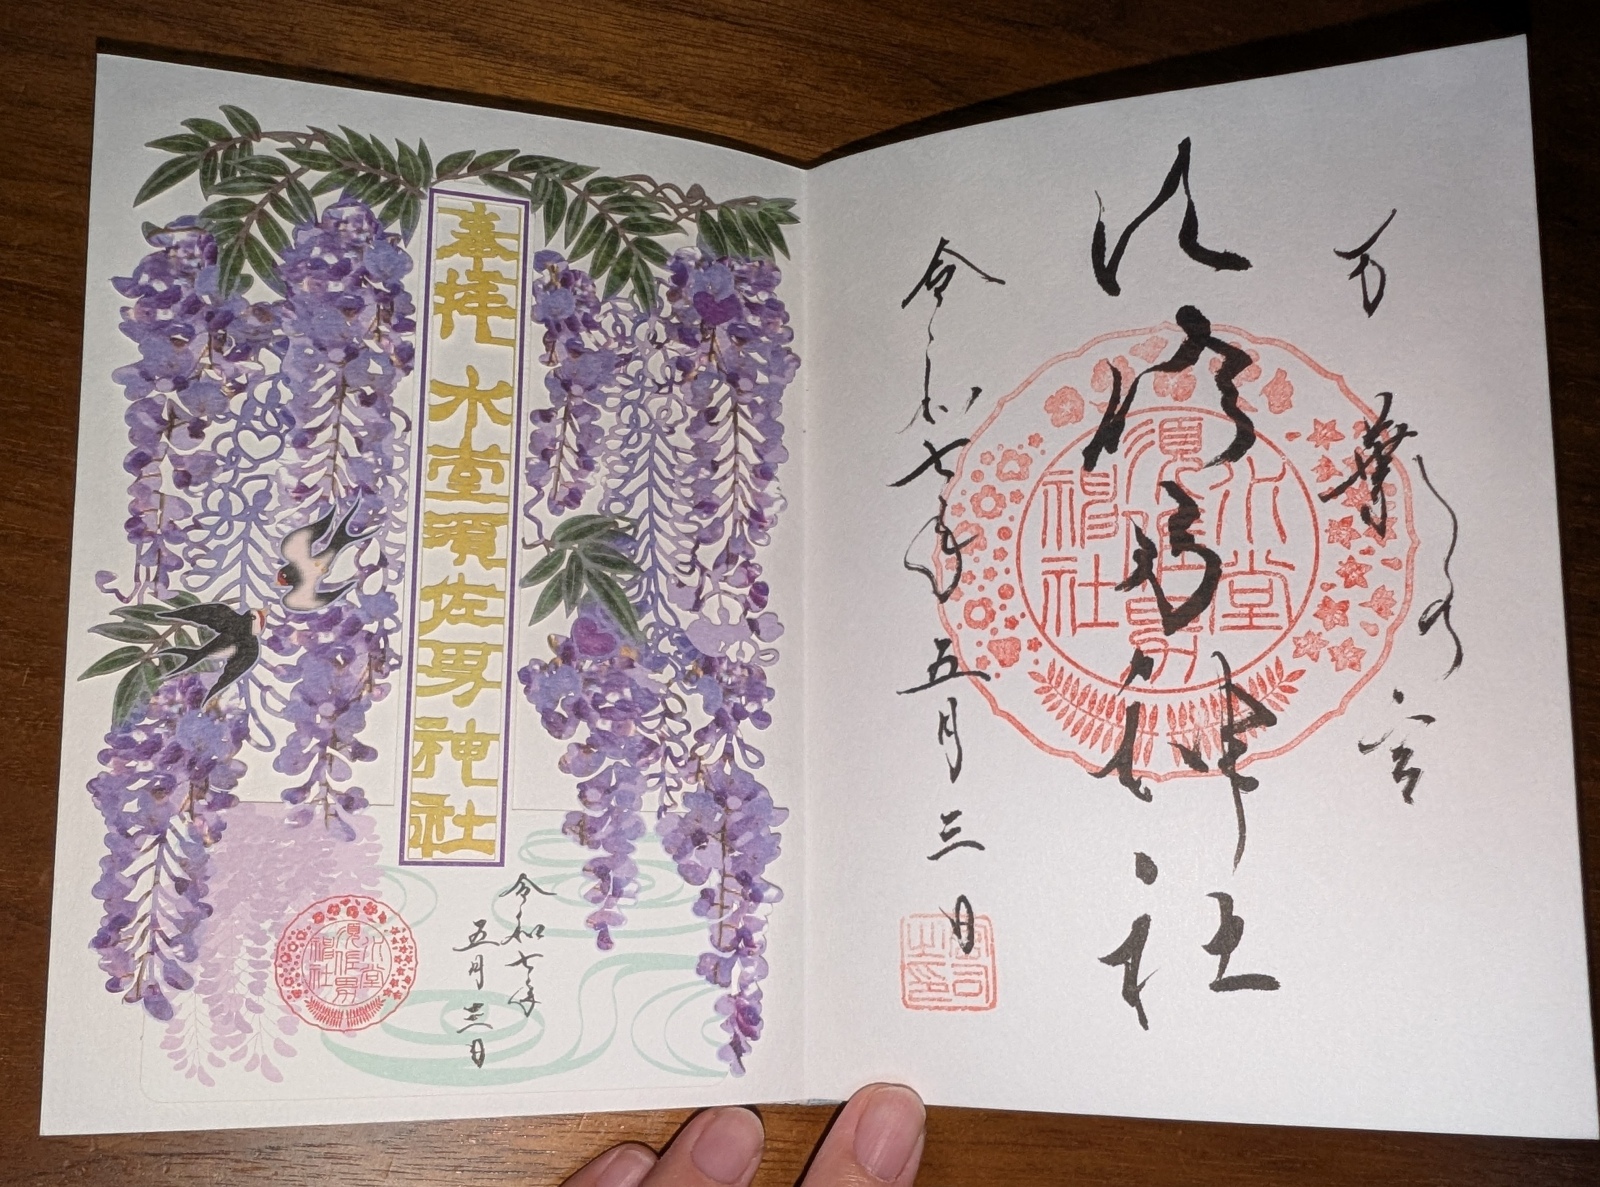 万華の宮
神社
水堂
須佐男
神社
令和七年五月三日
宮司
之印
奉拝 水堂須佐男神社
令和七年
五月三日
水堂
須佐男
神社